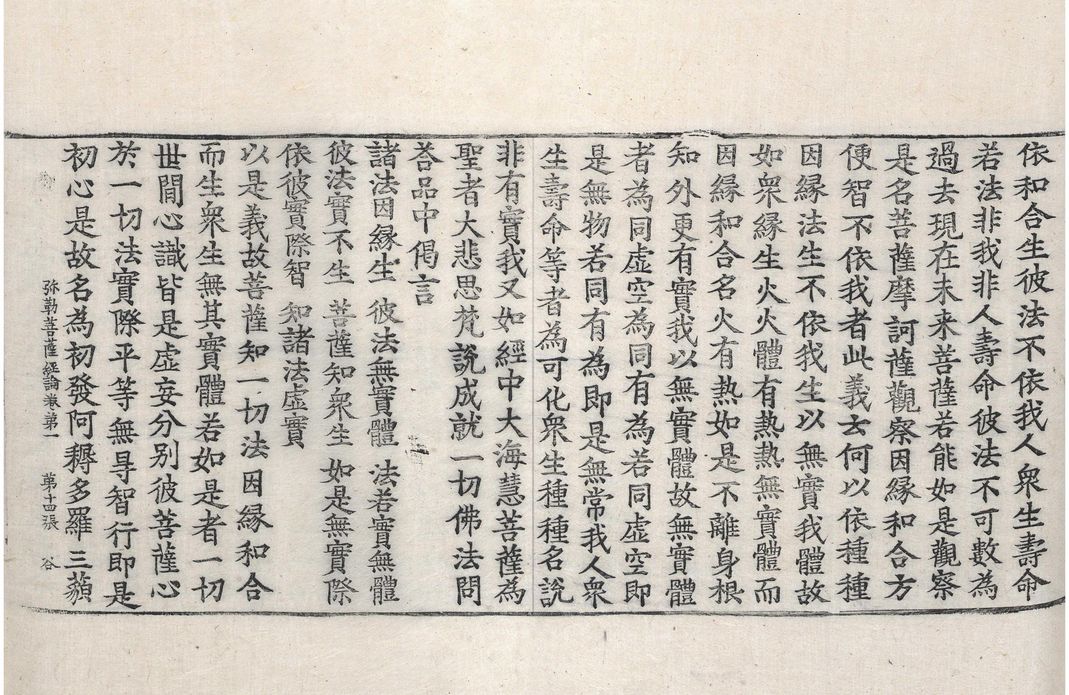 依和合生彼法不依我人衆生壽命
若法非我非人壽命彼法不可數為
過去現在未来菩薩若能如是觀察
是名菩薩摩訶薩觀察因緣和合方
便智不依我者此義云何以依種種
因緣法生不依我生以無實我體故
如衆緣生火火體有熱熱無實體而
因緣和合名火有熱如是不離身根
知外更有實我以無實體故無實體
者為同虛空為同有為若同虛空即
是無物若同有為即是無常我人衆
生壽命等者為可化衆生種種名說
非有實我又如經中大海慧菩薩為
聖者大悲思梵說成就一切佛法問
荅品中偈言
諸法因緣生 彼法無實體 法若實無體
彼法實不生 菩薩知衆生 如是無實際
依彼實際智 知諸法虛實
以是義故菩薩知一切法因緣和合
而生衆生無其實體若如是者一切
世間心識皆是虛妄分別彼菩薩心
於一切法實際平等無㝵智行即是
初心是故名為初發阿耨多羅三藐
弥勒菩薩経論卷第一 第十四張 谷